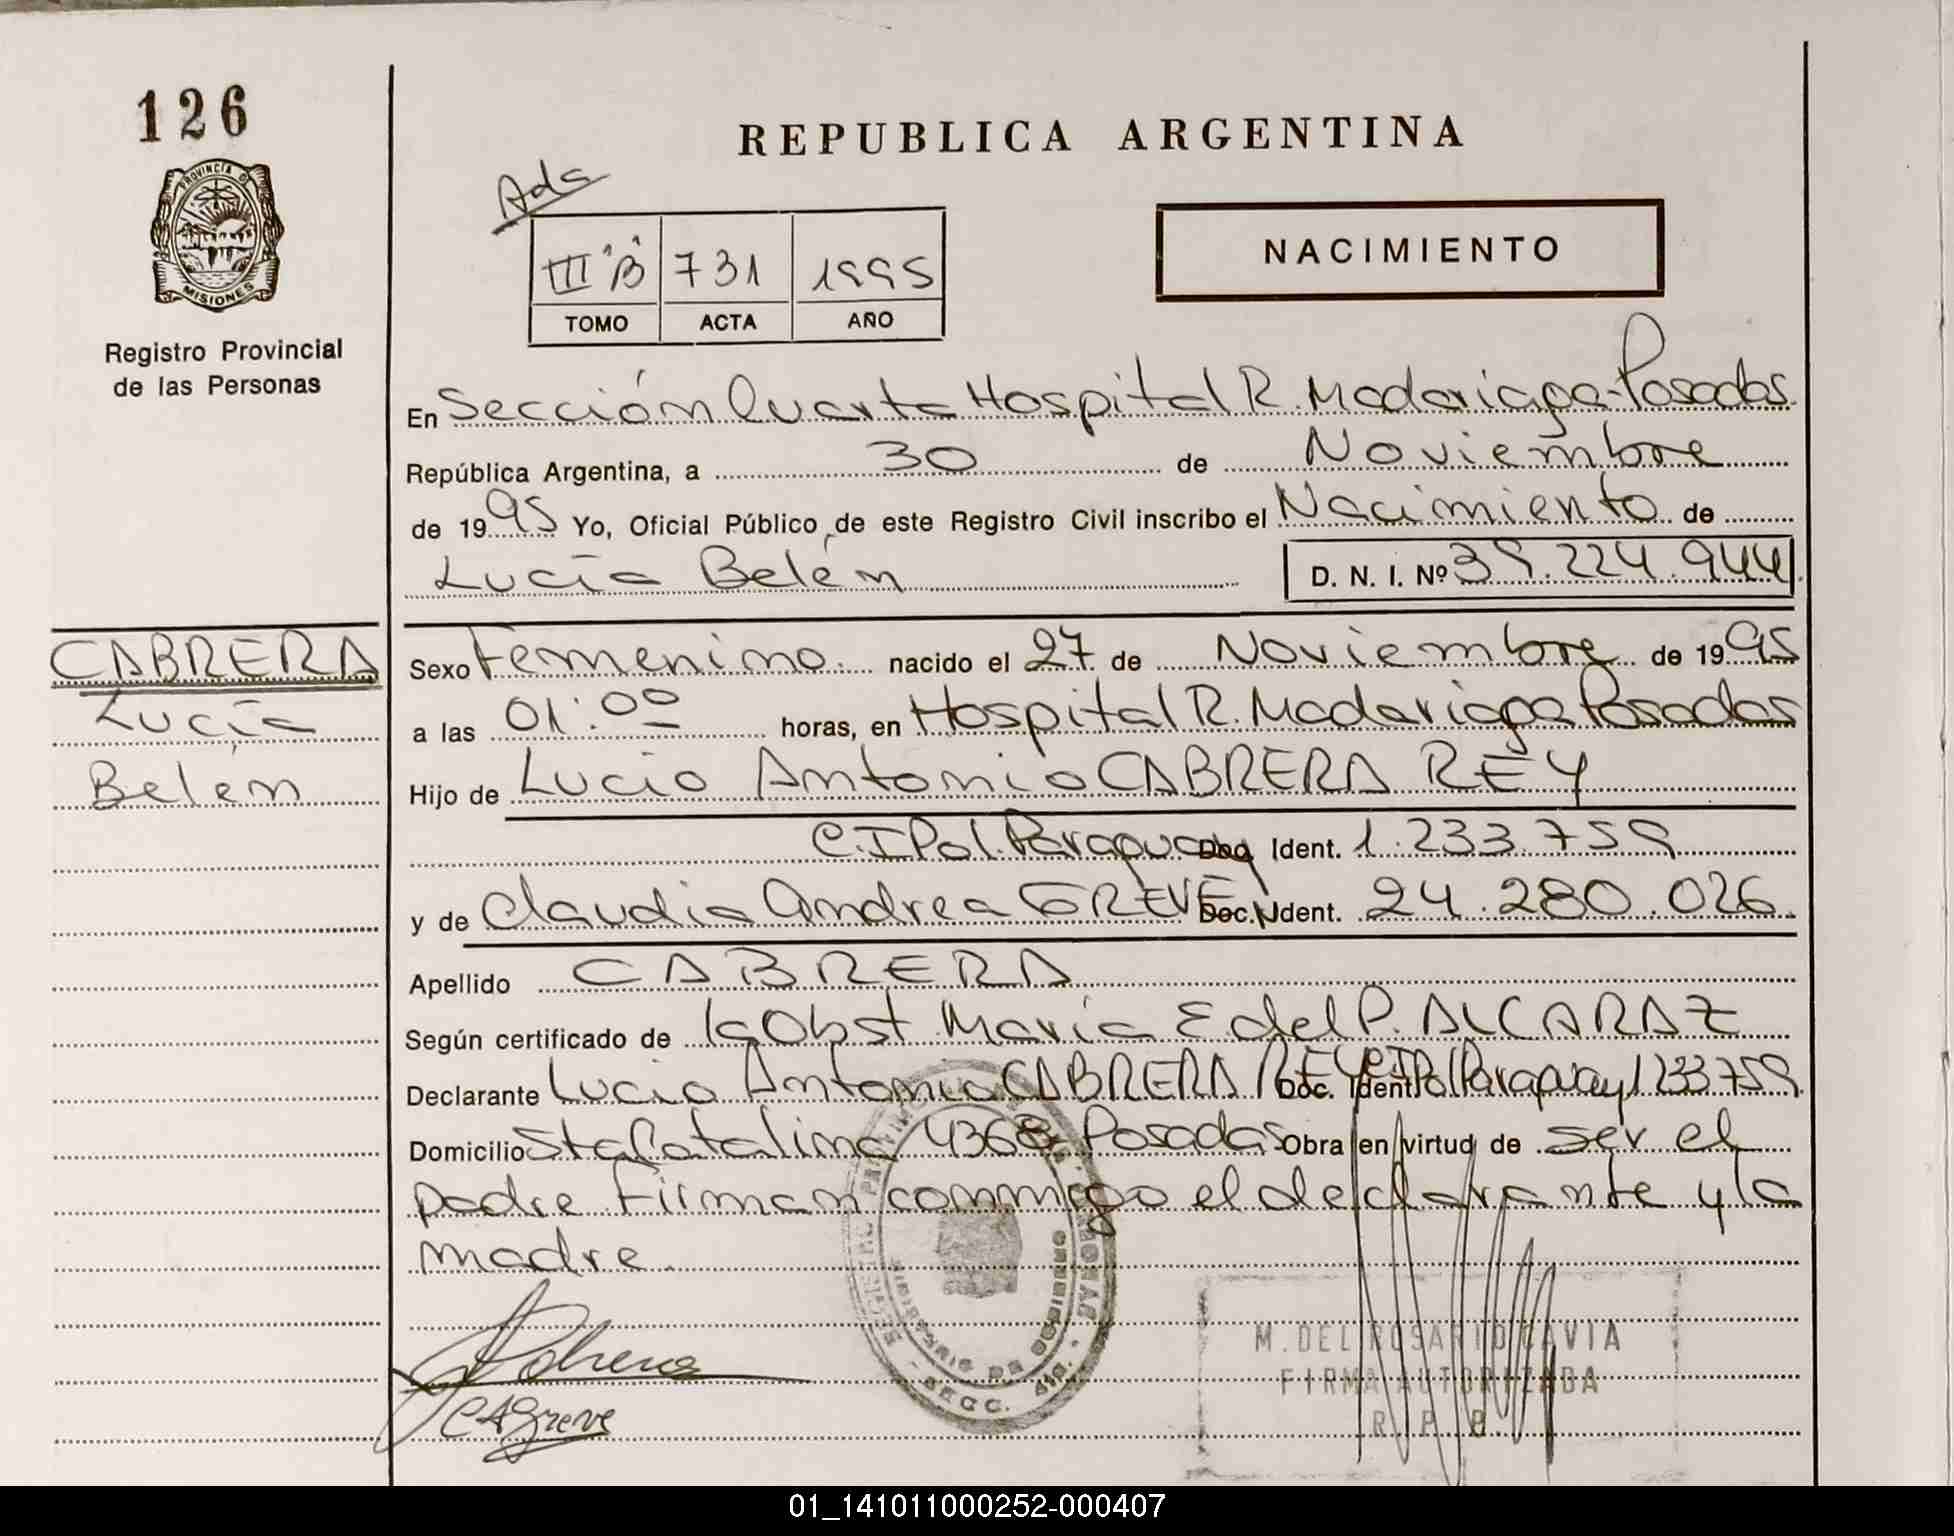 126
PROVINCIA DE
MISIONES
Registro Provincial
de las Personas
REPUBLICA ARGENTINA
Ads
III "B" 731 1995
TOMO ACTA AÑO
NACIMIENTO
En Sección Cuarta Hospital R. Madariaga-Posadas.
República Argentina, a 30 de Noviembre
de 1995 Yo, Oficial Público de este Registro Civil inscribo el Nacimiento de
Lucía Belén D. N. I. Nº 39.224.944
CABRERA
Lucía
Belén
Sexo Femenino. nacido el 27 de Noviembre de 1995
a las 01:00 horas, en Hospital R. Madariaga Posadas
Hijo de Lucio Antonio CABRERA REY
C.I Pol. Paraguay Doc. Ident. 1.233.759
y de Claudia Andrea GREVE Doc. Ident. 24.280.026.
Apellido CABRERA
Según certificado de la Obst. María E. del P. ALCARAZ
Declarante Lucio Antonio CABRERA REY Doc. Ident. C.I Pol Paraguay 1.233.759.
Domicilio Sta Catalina 4368 Posadas Obra en virtud de ser el
padre Firman conmigo el declarante y la
madre.
REGISTRO PROVINCIAL DE LAS PERSONAS
MINISTERIO DE GOBIERNO
SECC. 4ta.
Cabrera
CAGreve
M. DEL ROSARIO GAVIA
FIRMA AUTORIZADA
R P P
01_141011000252-000407